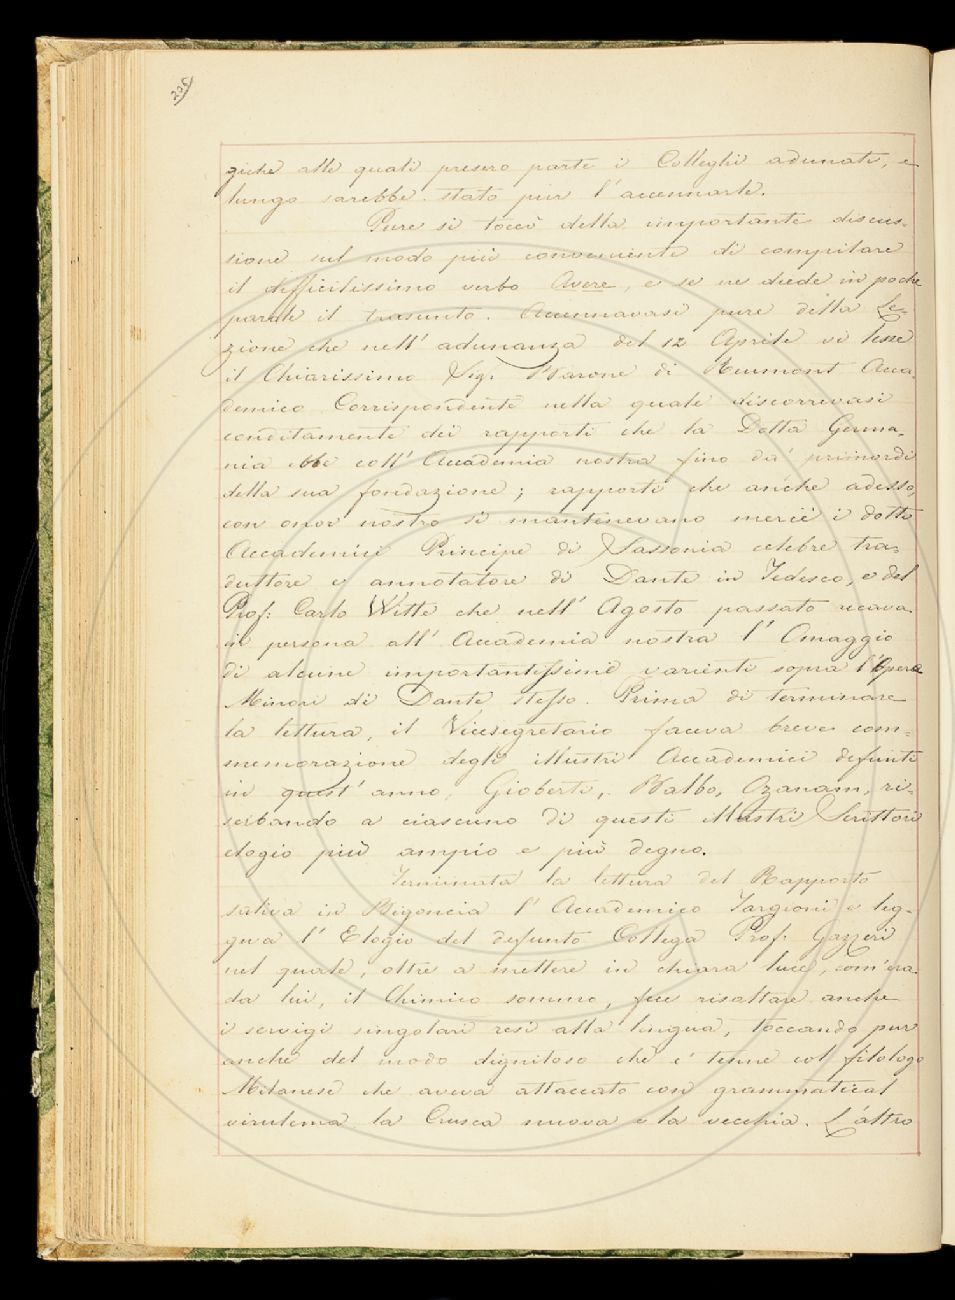 226
giche alle quali presero parte i Colleghi adunati, e
lungo sarebbe stato pur l'accennarle.
Pure si toccò della importante discus-
sione sul modo più conveniente di compilare
il difficilissimo verbo Avere, e se ne diede in poche
parole il trasunto. Accennavasi pure della Le-
zione che nell' adunanza del 12 Aprile vi lesse
il Chiarissimo Sig. Barone di Reumont Acca-
demico Corrispondente nella quale discorrevasi
eruditamente dei rapporti che la Dotta Germa-
nia ebbe coll' Accademia nostra fino da' primordi
della sua fondazione; rapporti che anche adesso,
con onor nostro si mantenevano mercè i dotti
Accademici Principe di Sassonia celebre tra-
duttore e annotatore di Dante in Tedesco, e del
Prof: Carlo Witte che nell' Agosto passato recava
in persona all' Accademia nostra l' Omaggio
di alcune importantissime varianti sopra l'Opere
Minori di Dante stesso. Prima di terminare
la lettura, il Vicesegretario faceva breve com-
memorazione degli illustri Accademici defunti
in quest' anno, Gioberti, Balbo, Ozanam, ri-
serbando a ciascuno di questi Illustri Scrittori
elogio più ampio e più degno.
Terminata la lettura del Rapporto
saliva in Bigoncia l' Accademico Targioni e leg-
geva l' Elogio del defunto Collega Prof: Gazzeri
nel quale, oltre a mettere in chiara luce, com'era
da lui, il Chimico sommo, fece risaltare anche
i servigi singolari resi alla lingua, toccando pur
anche del modo dignitoso che e' tenne col filologo
Milanese che aveva attaccato con grammatical
virulenza la Crusca nuova e la vecchia. L'altro